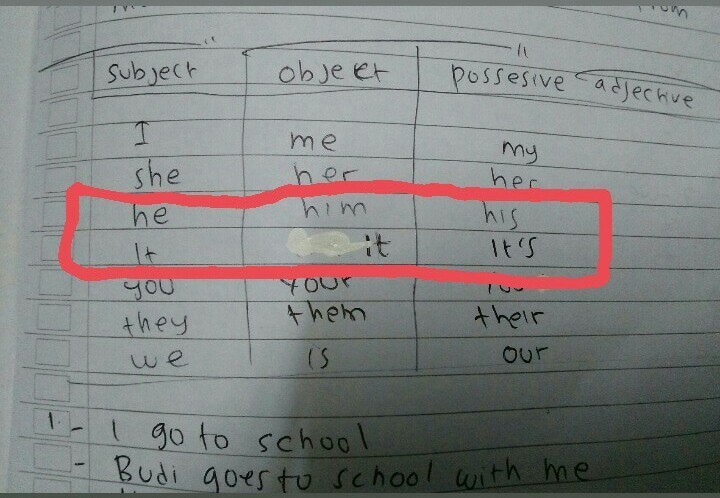 subject object possesive adjective
I me my
she her her
he him his
It it It's
you your
they them their
we is our
1. - I go to school
- Budi goes to school with me